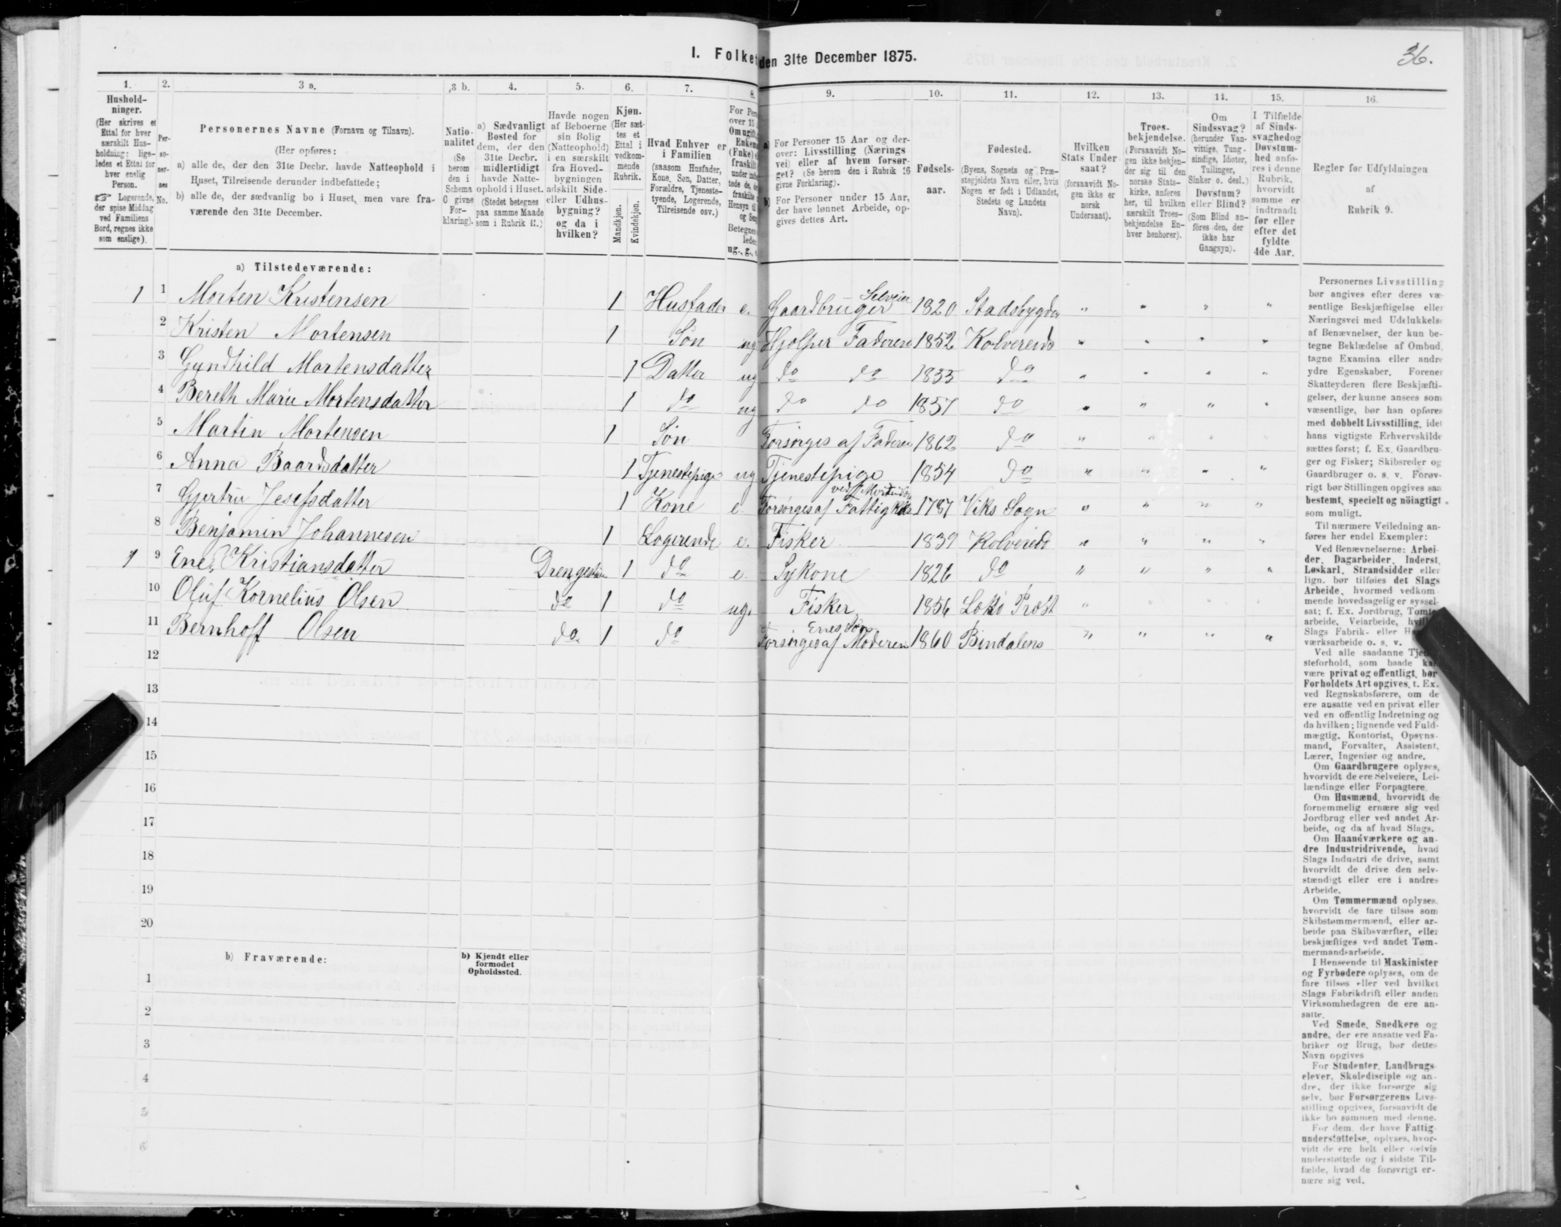 36.
I. Folke
den 31te December 1875.
1.
2.
3 a.
3 b.
4.
5.
6.
7.
8.
9.
10.
11.
12.
13.
14.
15.
16.
Hushold-
ninger.
(Her skrives et
Ettal for hver
særskilt Hus-
holdning; lige-
ledes et Ettal for
hver enslig
Person.
☞ Logerende,
der spise Middag
ved Familiens
Bord, regnes ikke
som enslige).
Per-
so-
ner-
nes
No.
Personernes Navne (Fornavn og Tilnavn).
(Her opføres:
a) alle de, der den 31te Decbr. havde Natteophold i
Huset, Tilreisende derunder indbefattede;
b) alle de, der sædvanlig bo i Huset, men vare fra-
værende den 31te December.
Natio-
nalitet
(Se
herom
den i
Schema
O givne
For-
klaring).
a) Sædvanligt
Bosted for
dem, der den
31te Decbr.
midlertidigt
havde Natte-
ophold i Huset.
(Stedet betegnes
paa samme Maade
som i Rubrik 11.)
Havde nogen
af Beboerne
sin Bolig
(Natteophold)
i en særskilt
fra Hoved-
bygningen
adskilt Side-
eller Udhus-
bygning?
og da i
hvilken?
Kjøn.
(Her sæt-
tes et
Ettal i
vedkom-
mende
Rubrik.
Mandkjøn.
Kvindekjøn.
Hvad Enhver er
i Familien
(saasom Husfader,
Kone, Søn, Datter,
Forældre, Tjeneste-
tyende, Logerende,
Tilreisende osv.)
For Personer 15 Aar og der-
over: Livsstilling (Nærings
vei) eller af hvem forsør-
get? (Se herom den i Rubrik 16
givne Forklaring).
For Personer under 15 Aar,
der have lønnet Arbeide, op-
gives dettes Art.
Fødsels-
aar.
Fødested.
(Byens, Sognets og Præ-
stegjeldets Navn eller, hvis
Nogen er født i Udlandet,
Stedets og Landets
Navn).
Hvilken
Stats Under
saat?
(forsaavidt No-
gen ikke er
norsk
Undersaat).
Troes-
bekjendelse.
(Forsaavidt No-
gen ikke bekjen-
der sig til den
norske Stats-
kirke, anføres
her, til hvilken
særskilt Troes-
bekjendelse En-
hver henhører).
Om
Sindssvag?
(herunder Van-
vittige, Tung-
sindige, Idioter,
Tullinger,
Sinker o. desl.)
Døvstum?
eller Blind?
(Som Blind an-
føres den, der
ikke har
Gangsyn).
I Tilfælde
af Sinds-
svaghed og
Døvstum-
hed anfø-
res i denne
Rubrik,
hvorvidt
samme er
indtraadt
før eller
efter det
fyldte
4de Aar.
Regler for Udfyldningen
af
Rubrik 9.
a) Tilstedeværende:
1 1 Morten Kristensen 1 Husfader e. Gaardbruger Selveier 1820 Stadsbygden " " " "
2 Kristen Mortensen 1 Søn ug Hjelper Faderen 1852 Kolvereid " " " "
3 Gundhild Mortensdatter 1 Datter ug do do 1855 do " " " "
4 Bereth Marie Mortensdatter 1 do ug do do 1857 do " " " "
5 Martin Mortensen 1 Søn Forsørges af Faderen 1862 do " " " "
6 Anna Baardsdatter 1 Tjenestepige ug Tjenestepige 1854 do " " " "
7 Gjertru Josefsdatter 1 Kone e Forsørges af Fattigkas 1787 Viks Sogn " " " "
8 Benjamin Johannesen 1 Logerende e. Fisker 1839 Kolvereid " " " "
1 9 Ene Kristiansdatter Drengestue 1 do e Sykone 1826 do " " " "
10 Oluf Kornelius Olsen do 1 do ug. Fisker 1856
11 Bernhoff Olsen do. 1 do Forsørges af Moderen Enes Søn 1860 Bindalens " " " "
12
13
14
15
16
17
18
19
20
b) Fraværende:
b) Kjendt eller
formodet
Opholdssted.
1
2
3
4
5
6
Personernes Livsstilling
bør angives efter deres væ-
sentlige Beskjæftigelse eller
Næringsvei med Udelukkelse
af Benævnelser, der kun be-
tegne Beklædelse af Ombud,
tagne Examina eller andre
ydre Egenskaber. Forener
Skatteyderen flere Beskjæfti-
gelser, der kunne ansees som
væsentlige, bør han opføres
med dobbelt Livsstilling, idet
hans vigtigste Erhvervskilde
sættes først; f. Ex. Gaardbru-
ger og Fisker; Skibsreder og
Gaardbruger o. s. v. Forøv-
rigt bør Stillingen opgives saa
bestemt, specielt og nöiagtigt
som muligt.
Til nærmere Veiledning an-
føres her endel Exempler:
Ved Benævnelserne: Arbei-
der, Dagarbeider, Inderst,
Løskarl, Strandsidder eller
lign. bør tilføies det Slags
Arbeide, hvormed vedkom-
mende hovedsagelig er syssel-
sat; f. Ex. Jordbrug, Tomte-
arbeide, Veiarbeide,
Slags Fabrik- eller
værksarbeide o. s. v.
Ved alle saadanne
steforhold, som baade
være privat og offentligt, bør
Forholdets Art opgives, t. Ex.
ved Regnskabsførere, om de
ere ansatte ved en privat eller
ved en offentlig Indretning og
da hvilken; lignende ved Fuld-
mægtig, Kontorist, Opsyns-
mand, Forvalter, Assistent,
Lærer, Ingeniør og andre.
Om Gaardbrugere oplyses,
hvorvidt de ere Selveiere, Lei-
lændinge eller Forpagtere.
Om Husmænd, hvorvidt de
fornemmelig ernære sig ved
Jordbrug eller ved andet Ar-
beide, og da af hvad Slags.
Om Haandværkere og an-
dre Industridrivende, hvad
Slags Industri de drive, samt
hvorvidt de drive den selv-
stændigt eller ere i andres
Arbeide.
Om Tømmermænd oplyses,
hvorvidt de fare tilsøs som
Skibstømmermænd, eller ar-
beide paa Skibsværfter, eller
beskjæftiges ved andet Tøm-
mermandsarbeide.
I Henseende til Maskinister
og Fyrbødere oplyses, om de
fare tilsøs eller ved hvilket
Slags Fabrikdrift eller anden
Virksomhedsgren de ere an-
satte.
Ved Smede, Snedkere og
andre, der ere ansatte ved Fa-
briker og Brug, bør dettes
Navn opgives
For Studenter, Landbrugs-
elever, Skoledisciple og an-
dre, der ikke forsørge sig
selv, bør Forsørgerens Livs-
stilling opgives, forsaavidt de
ikke bo sammen med denne.
For dem, der have Fattig-
understøttelse, oplyses, hvor-
vidt de ere helt eller delvis
understøttede og i sidste Til-
fælde, hvad de forøvrigt er-
nære sig ved.